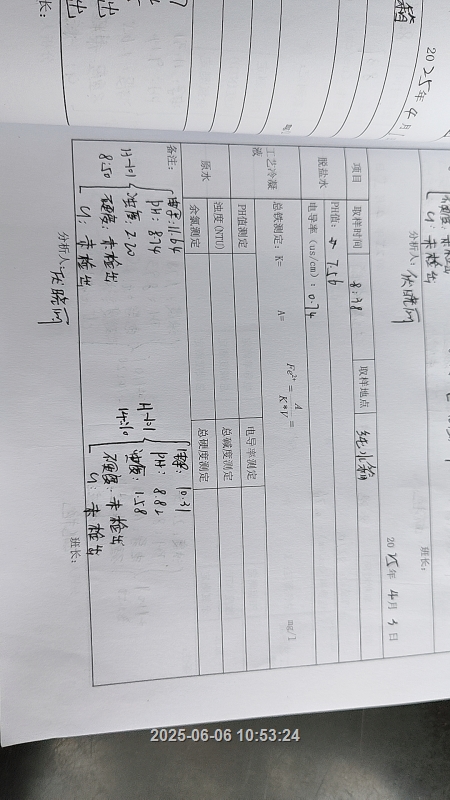 2025年4月3日
项目
取样时间
8:38
取样地点
纯水箱
脱盐水
PH值: 7.56
电导率(us/cm): 0.74
工艺冷凝液
总铁测定: K= A= Fe²⁺ = A / K*V = mg/l
PH值测定
电导率测定
原水
浊度(NTU)
总碱度测定
余氯测定
总硬度测定
备注:
H-101
8:50
电导: 11.64
PH: 8.74
浊度: 2.20
硬度: 未检出
Cl: 未检出
H-101
14:10
电导: 10.31
PH: 8.82
浊度: 1.58
硬度: 未检出
Cl: 未检出
分析人:
班长:
2025年4月
硬度: 未检出
Cl: 未检出
分析人:
班长:
班长:
2025-06-06 10:53:24